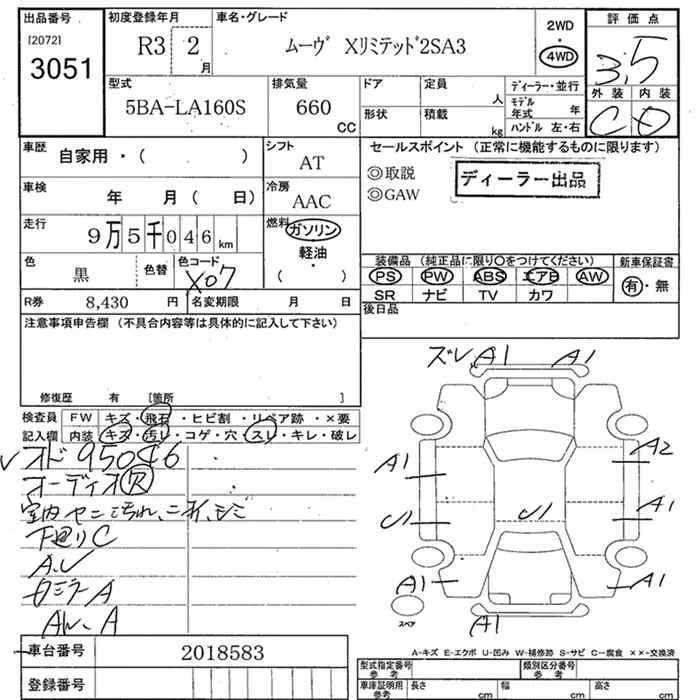 出品番号 初度登録年月 車名・グレード 2WD・4WD 評価点
[2072] 3051 R3 2月 ムーヴ Xリミテッド2SA3 3.5
型式 排気量 ドア 定員 人 ディーラー・並行 外装 内装
5BA-LA160S 660 CC 形状 積載 kg モデル年式 年 C D
ハンドル 左・右
車歴 自家用・( ) シフト AT セールスポイント (正常に機能するものに限ります)
◎取説 ディーラー出品
◎GAW
車検 年 月 ( 日) 冷房 AAC
走行 9万5千046km 燃料 ガソリン・軽油・( )
色 黒 色替 色コード X07
装備品 (純正品に限り○をつけてください) 新車保証書
PS PW ABS エアB AW 有・無
SR ナビ TV カワ
R券 8,430 円 名変期限 月 日 後日品
注意事項申告欄 (不具合内容等は具体的に記入して下さい)
修復歴 有 [箇所 ]
検査員 FW キズ・飛石・ヒビ割・リペア跡・×要
記入欄 内装 キズ・汚レ・コゲ・穴・スレ・キレ・破レ
オド 95046
オーディオR
下廻りC
A.U
ロミラーA
AW、A
ズレ A1 A1
A1 A2
U1 U1 A1
A1 A1
スペア
A1
A-キズ E-エクボ U-凹み W-補修跡 S-サビ C-腐食 ××-交換済
車台番号 2018583
登録番号
型式指定番号 参考 類別区分番号 参考
車庫証明用 参考 長さ cm 幅 cm 高さ cm